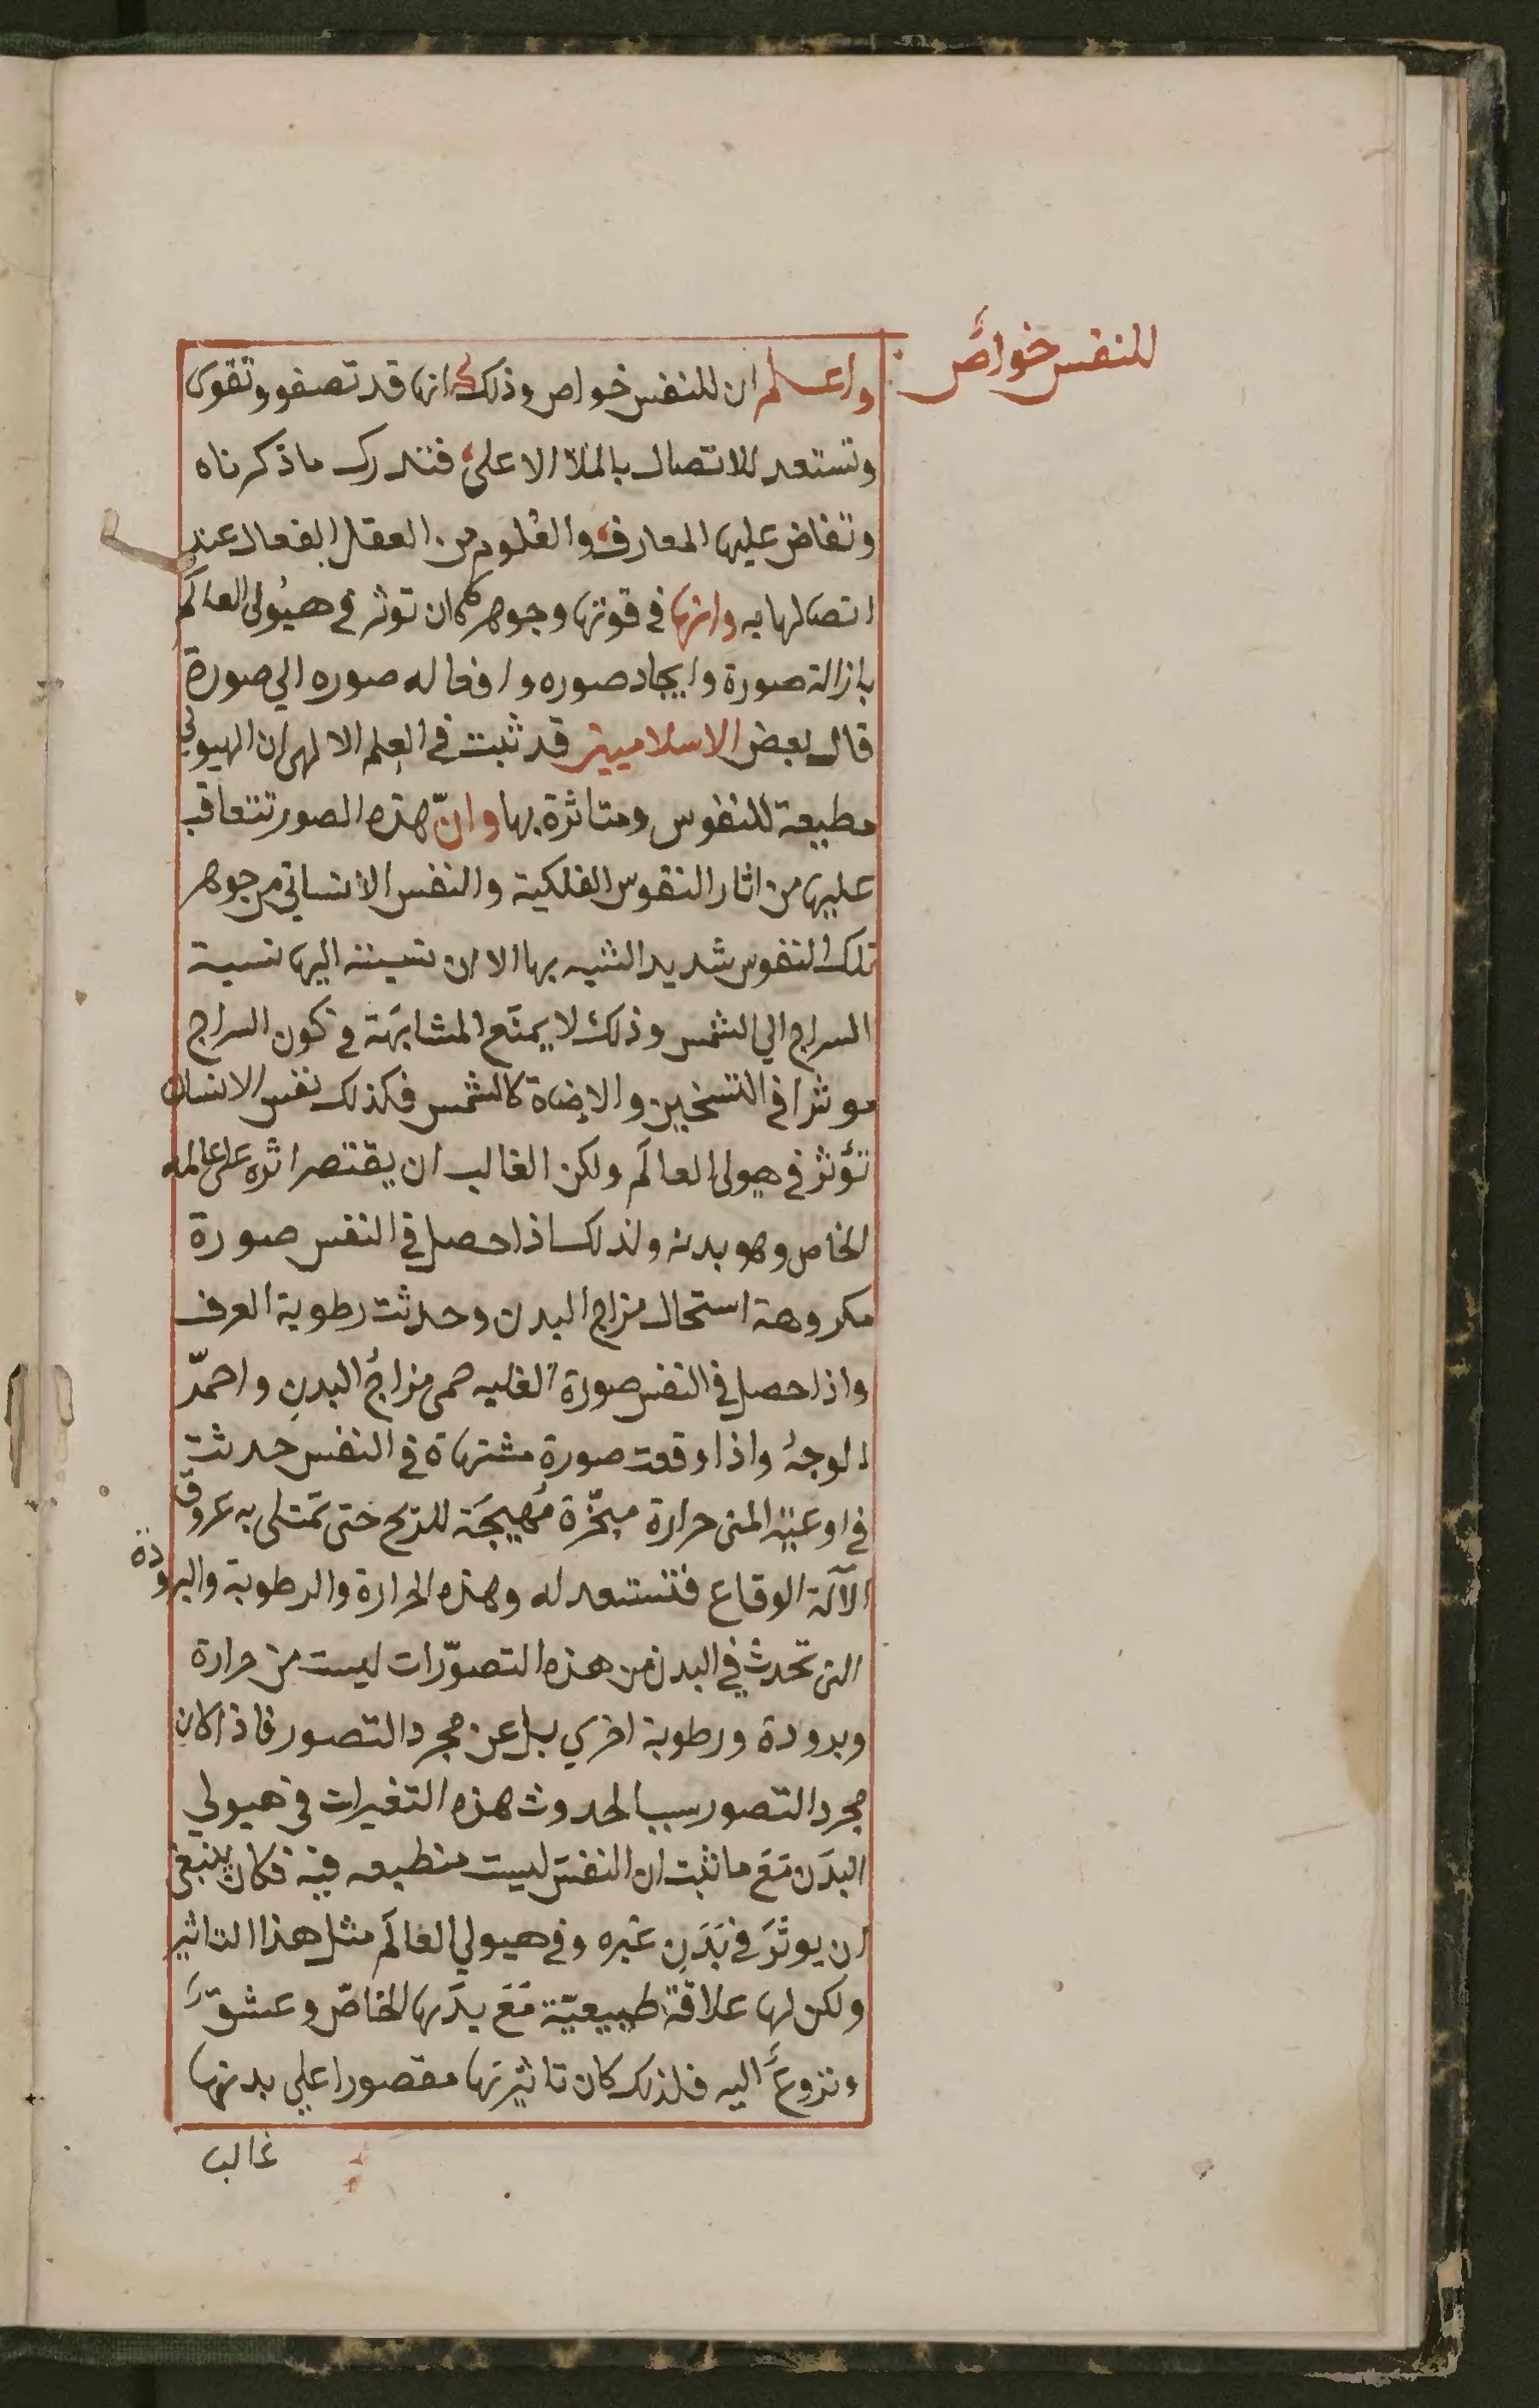 للنفس خواصَّ
واعلم ان للنفس خواص وذلك انها قد تصفو وتقوى
وتستعد للاتصال بالملا الاعلى فتدرك ما ذكرناه
وتفاض عليها المعارف والعلوم من العقل الفعال عند
اتصالها به وانها في قوتها وجوهرها ان توثر في هيولى العالم
بازالة صورة وايجاد صوره وافعاله صوره الي صورة
قال بعض الاسلاميين قد ثبت في العِلم الالهى ان الهيولي
مطيعة للنفوس ومتاثرة بها وانّ هذه الصور تتعاقب
عليها من اثار النفوس الفلكية والنفس الانساني من جوهر
تلك النفوس شديد الشبه بها الا ان نسبته اليها نسبة
السراج الي الشمس وذلك لا يمنَع المشابهَة في كون السراج
موثرا في التسخين والاضاة كالشمس فكذلك نفس الانسان
تؤثر في هيولى العالَم ولكن الغالب ان يقتصر اثره على عالمه
الخاص وهو بدنه ولذلك اذا حصل في النفس صورة
مكروهة استحال مزاج البدن وحدثت رطوبة العرق
واذا حصل في النفس صورة الغلبه حمى مزاجُ البدنِ واحمرّ
الوجهُ واذا وقعت صورة مشتهاة في النفس حدثت
في اوعيَة المنى حرارة مبخّرة مُهيجَة للريح حتى تمتلى به عروق
الآلة الوقاع فتستعد له وهذه الحرارة والرطوبة والبرودة
التى تحدث في البدن من هذه التصوّرات ليست من حرارة
وبرودة ورطوبة اخري بل عن مجرد التصور فاذا كان
مجرد التصور سببا لحدوث هذه التغيرات في هيولي
البدَن مَعَ ما ثبت ان النفسَ ليست منطبعه فيه فكان ينبغى
ان يوثرَ في بَدَنِ غيره وفي هيولي العالَم مثل هذا التاثير
ولكن لها علاقةً طبيعيّة مَعَ بدَنها الخاصّ وعشقَّ
ونزوعَّ اليه فلذلك كان تاثيرها مقصورا علي بدنها
غالب